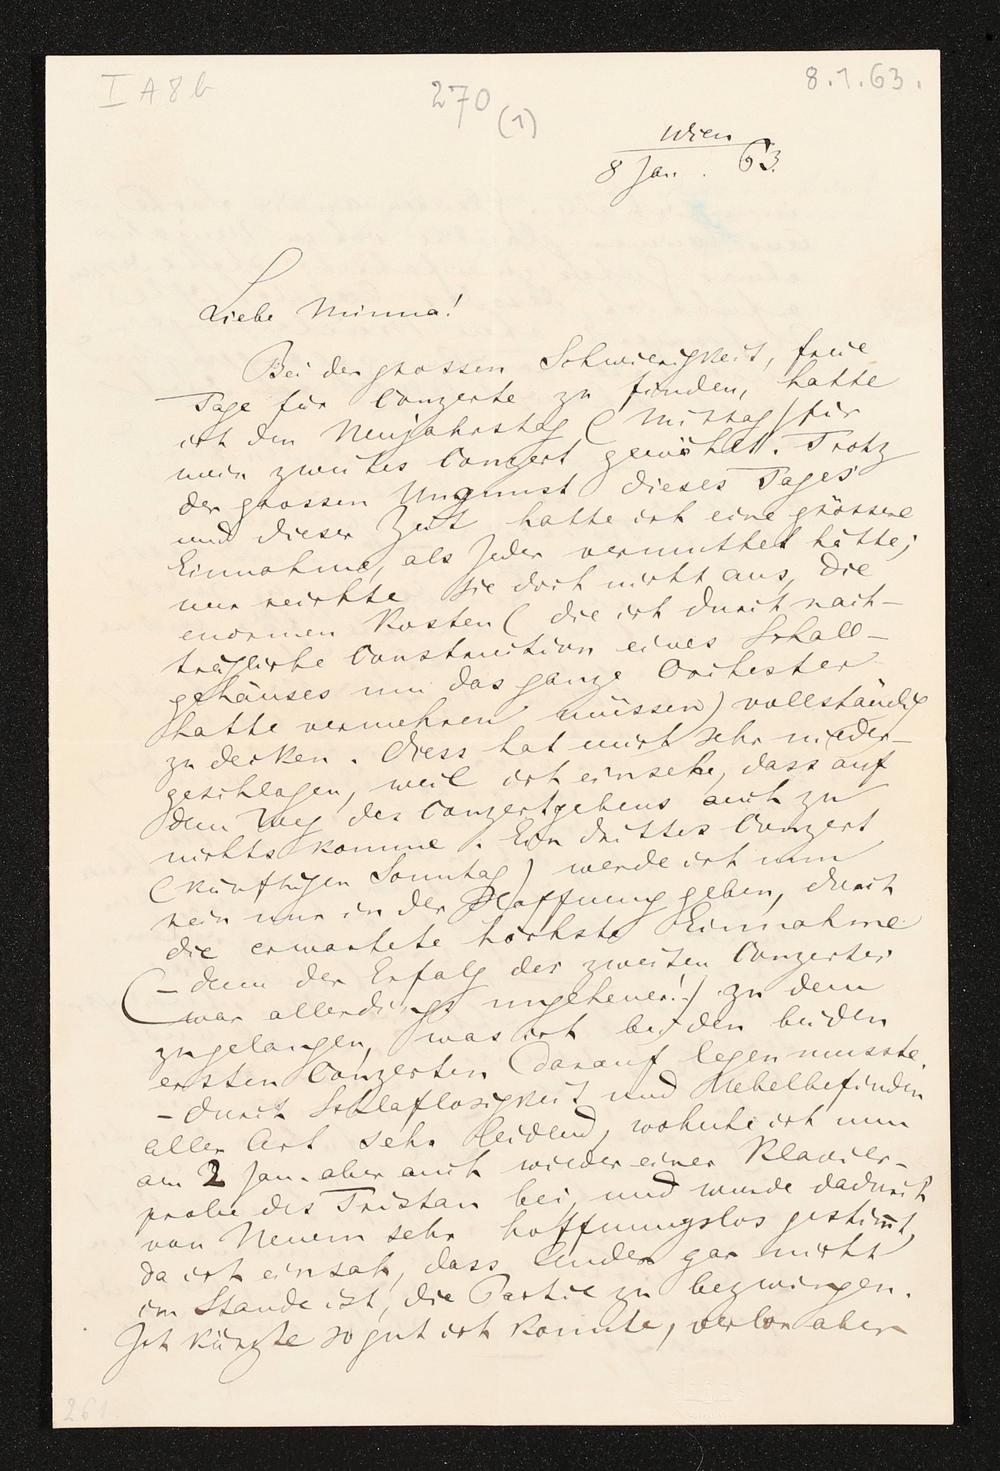 I A 8 b
270 (1)
8.1.63.
Wien
8 Jan. 63.
Liebe Minna!
Bei der grossen Schwierigkeit, freie
Tage für Conzerte zu finden, hatte
ich den Neujahrstag (Mittag) für
mein zweites Conzert gewählt. Trotz
der grossen Ungunst dieses Tages
und dieser Zeit hatte ich eine grössere
Einnahme, als Jeder vermuthet hätte;
nur reichte sie doch nicht aus, die
enormen Kosten (die ich durch nach-
trägliche Construction eines Schall-
gehäuses um das ganze Orchester
hatte vermehren müssen) vollständig
zu decken. Diess hat mich sehr nieder-
geschlagen, weil ich einsehe, dass auf
dem Weg des Conzertgebens auch zu
nichts komme. Ein drittes Conzert
(künftigen Sonntag) werde ich nun
rein nur in der Hoffnung geben, durch
die erwartete höchste Einnahme
(– denn der Erfolg des zweiten Conzertes
war allerdings ungeheuer!) zu dem
zu gelangen, was ich bei den beiden
ersten Conzerten darauf legen musste.
– Durch Schlaflosigkeit und Uebelbefinden
aller Art sehr leidend, wohnte ich nun
am 2 Jan. aber auch wieder einer Klavier-
probe des Tristan bei, und wurde dadurch
von Neuem sehr hoffnungslos gestimmt,
da ich einsah, dass Ander gar nicht
im Stande ist, die Partie zu bezwingen.
Ich kürzte so gut ich konnte, verlor aber
261